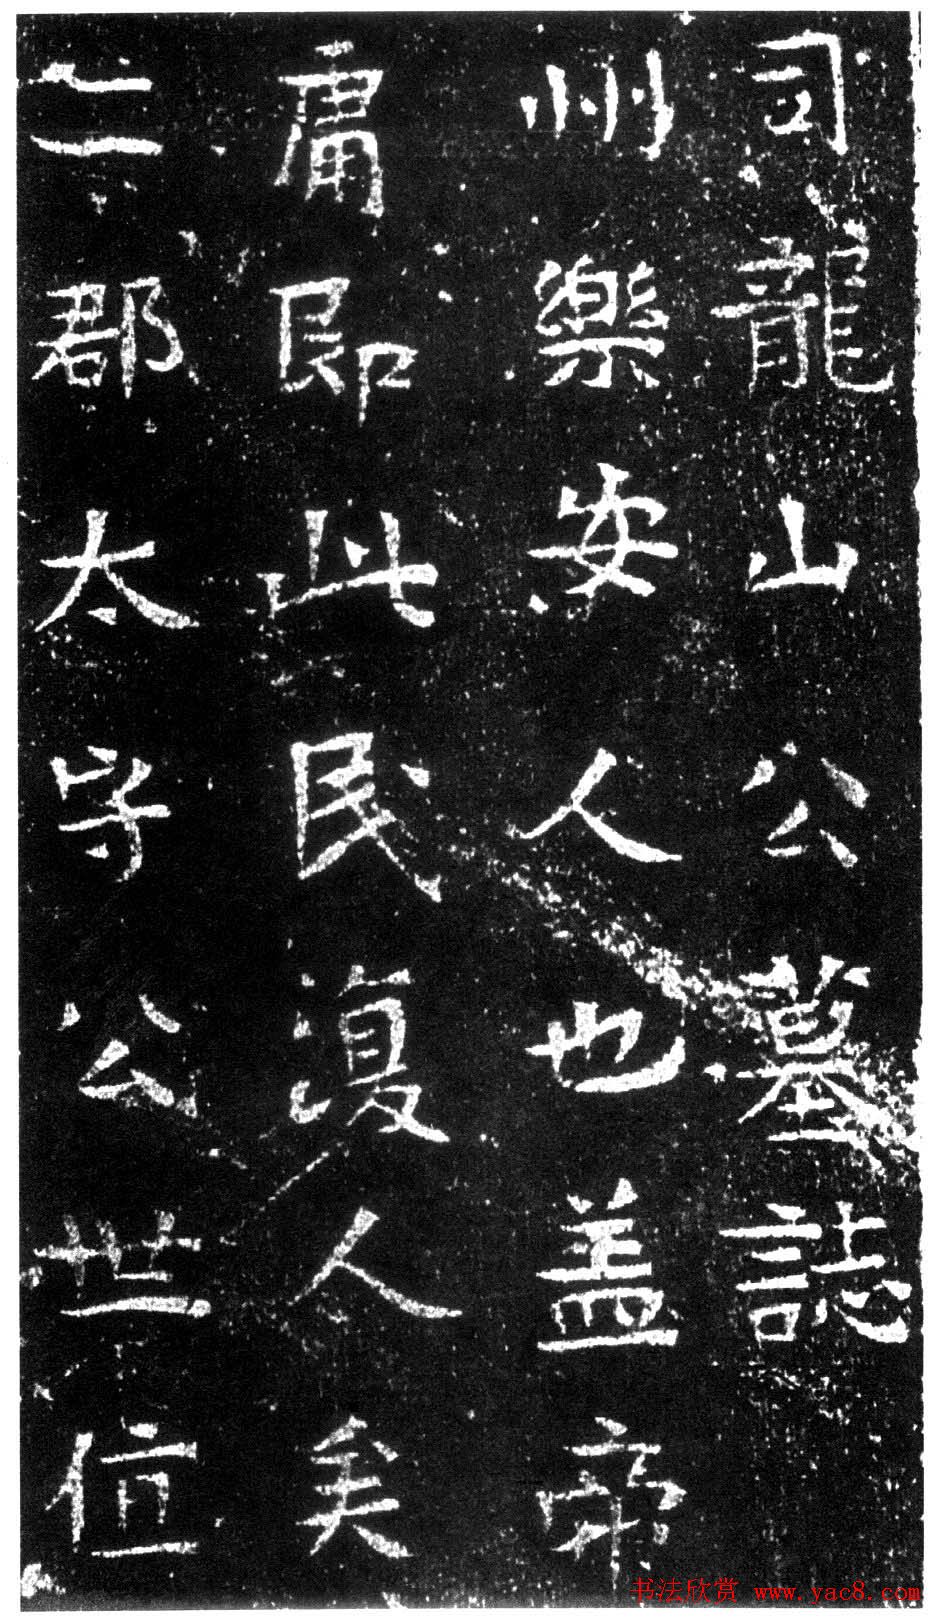 司龍山公墓誌
州樂安人也盖帝
庸即此民復人矣
二郡太守公世
书法欣赏 www.yac8.com